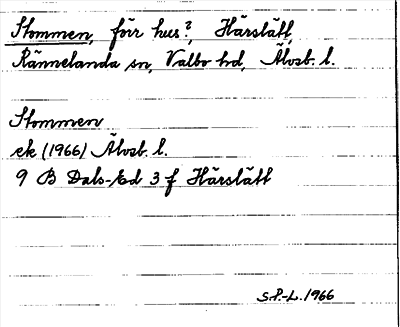 Stommen, förr hus?, Härslätt,
Rännelanda sn, Valbo hd, Älvsb. l.
Stommen
ek (1966) Älvsb. l.
9 B Dals-Ed 3 f Härslätt
S.P.-L. 1966